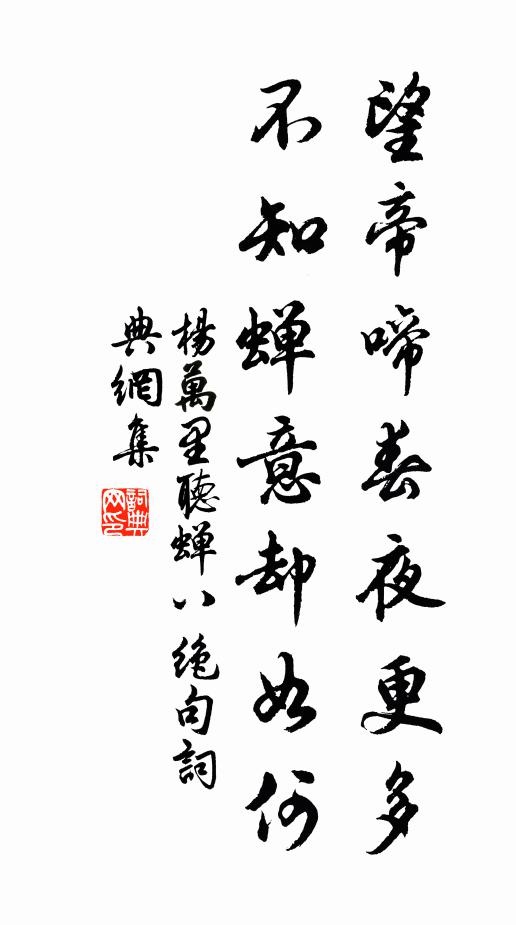 望帝啼春夜更多
不知蝉意却如何
楊萬里聽蝉八絶句詞
典網集
詞典网印